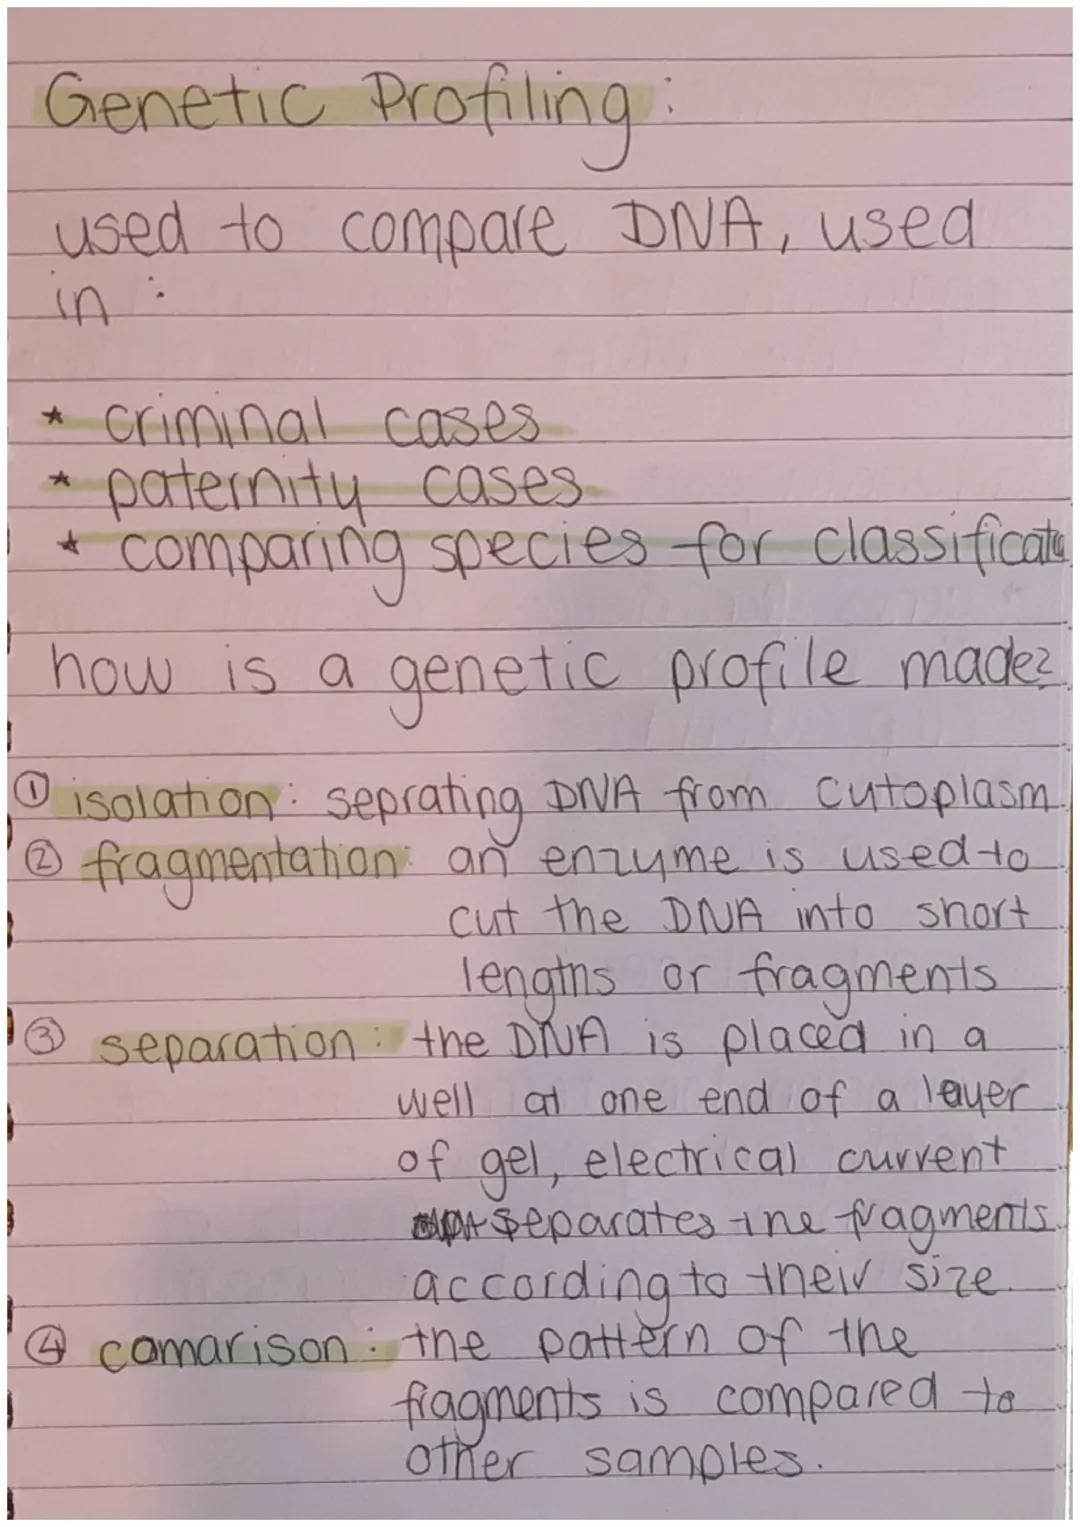 Genetic Profiling:
used to compare DNA, used
in:
* criminal cases
* paternity cases
* comparing species for
how is a genetic profile made?
① isolation: seprating DNA from cytoplasm
② fragmentation: an enzyme is used to
cut the DNA into short
lengths or fragments
③ separation: the DNA is placed in a
well at one end of a layer
of gel, electrical current
separates the fragments
according to their size.
④ comarison: the pattern of the
fragments is compared to
other samples.